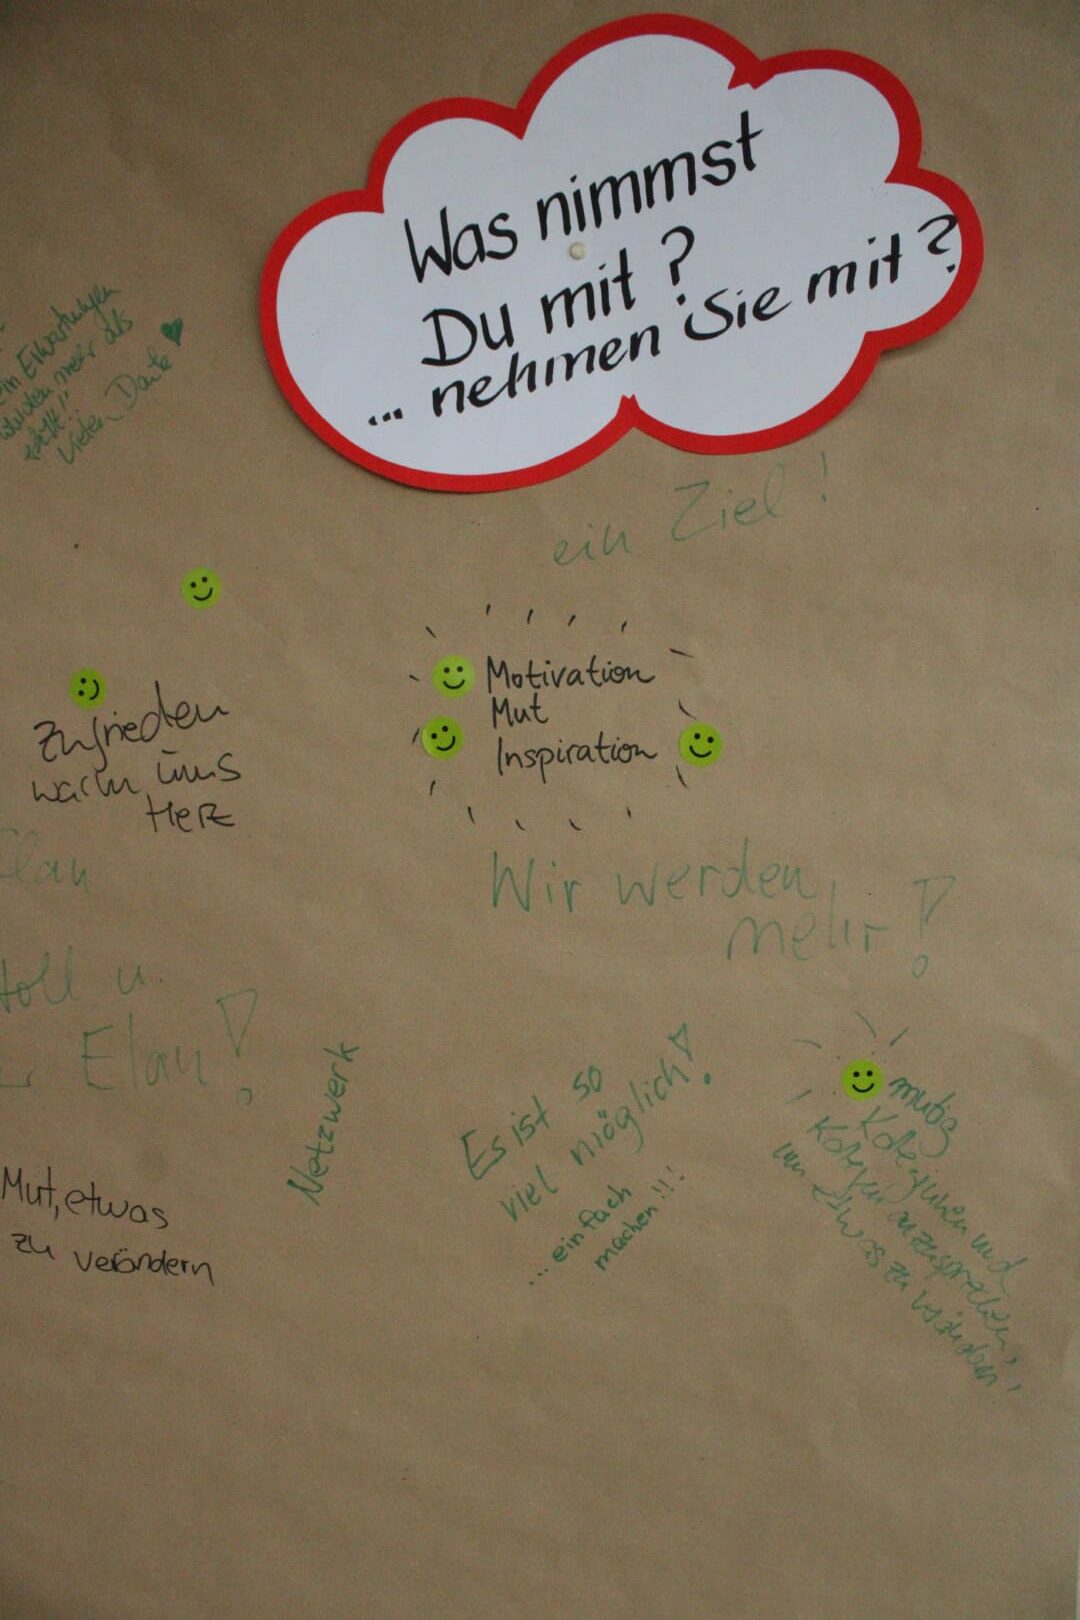 Was nimmst
Du mit?
... nehmen Sie mit?
Erwartungen
wurden mehr als
Vielen Dank
ein Ziel!
Motivation
Mut
Inspiration
zufrieden
warm ums
Herz
Elan
Wir werden
mehr!
toll u.
Elan!
Netzwerk
Es ist so
viel möglich!
... einfach
machen!!!
mutig
Kolleginnen und
Kollegen anzusprechen,
um Etwas zu verändern!
Mut, etwas
zu verändern